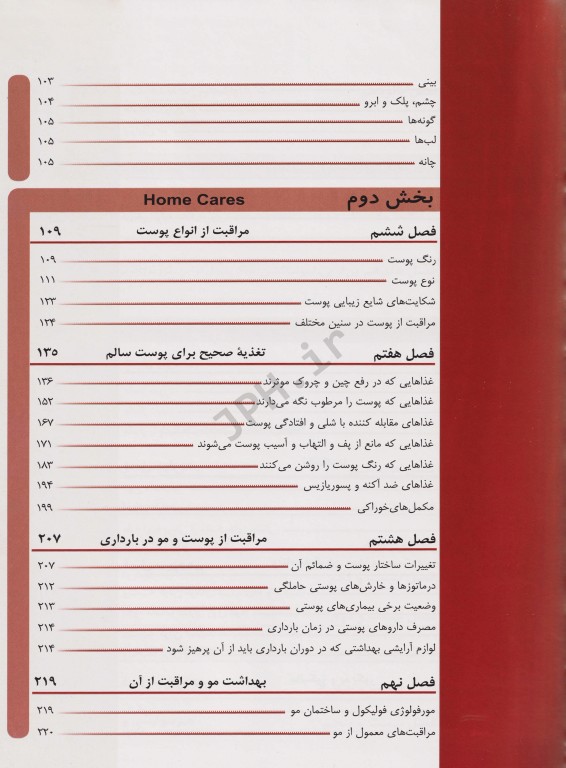 بینی ۱۰۳
چشم، پلک و ابرو ۱۰۴
گونه‌ها ۱۰۵
لب‌ها ۱۰۵
چانه ۱۰۵
بخش دوم Home Cares
فصل ششم مراقبت از انواع پوست ۱۰۹
رنگ پوست ۱۰۹
نوع پوست ۱۱۱
شکایت‌های شایع زیبایی پوست ۱۲۳
مراقبت از پوست در سنین مختلف ۱۲۴
فصل هفتم تغذیهٔ صحیح برای پوست سالم ۱۳۵
غذاهایی که در رفع چین و چروک موثرند ۱۳۶
غذاهایی که پوست را مرطوب نگه می‌دارند ۱۵۲
غذاهای مقابله کننده با شلی و افتادگی پوست ۱۶۷
غذاهایی که مانع از پف و التهاب و آسیب پوست می‌شوند ۱۷۱
غذاهایی که رنگ پوست را روشن می‌کنند ۱۸۳
غذاهای ضد آکنه و پسوریازیس ۱۹۴
مکمل‌های‌خوراکی ۱۹۹
فصل هشتم مراقبت از پوست و مو در بارداری ۲۰۷
تغییرات ساختار پوست و ضمائم آن ۲۰۷
درماتوزها و خارش‌های پوستی حاملگی ۲۱۲
وضعیت برخی بیماری‌های پوستی ۲۱۳
مصرف داروهای پوستی در زمان بارداری ۲۱۴
لوازم آرایشی بهداشتی که در دوران بارداری باید از آن پرهیز شود ۲۱۴
فصل نهم بهداشت مو و مراقبت از آن ۲۱۹
مورفولوژی فولیکول و ساختمان مو ۲۱۹
مراقبت‌های معمول از مو ۲۲۰
JPH.ir